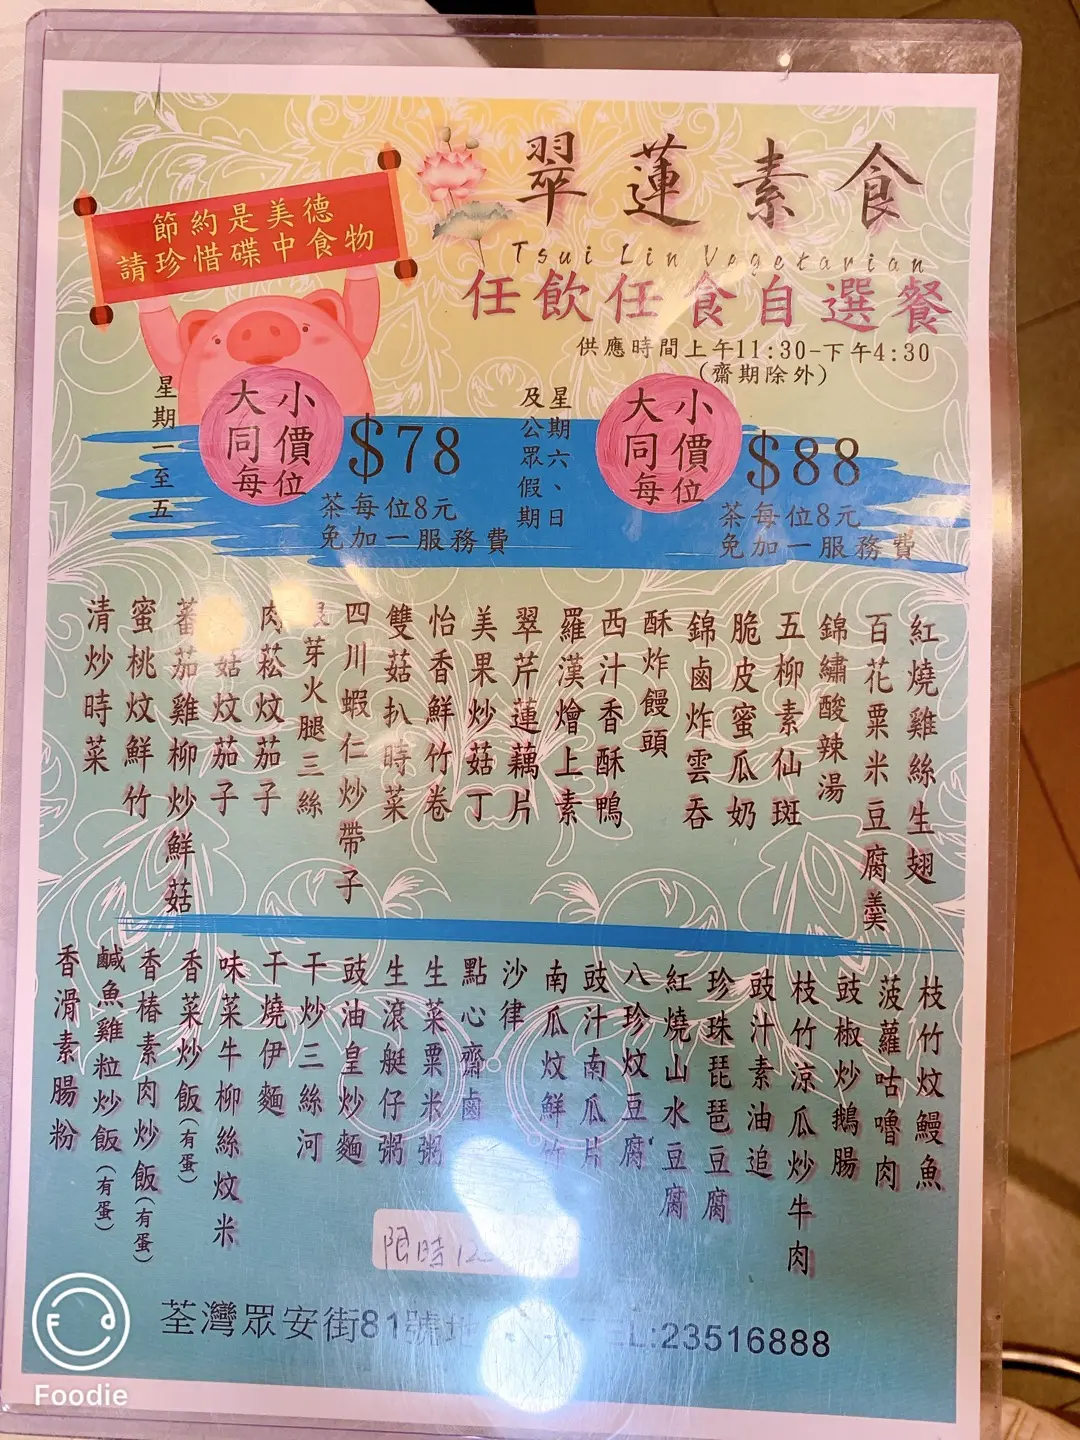 翠蓮素食
Tsui Lin Vegetarian
節約是美德
請珍惜碟中食物
任飲任食自選餐
供應時間上午11:30-下午4:30
(齋期除外)
星期一至五
大小
同價
每位
$78
茶每位8元
免加一服務費
星期六、日
及公眾假期
大小
同價
每位
$88
茶每位8元
免加一服務費
紅燒雞絲生翅
百花粟米豆腐羹
錦繡酸辣湯
五柳素仙斑
脆皮蜜瓜奶
錦鹵炸雲吞
酥炸饅頭
西汁香酥鴨
羅漢燴上素
翠芹蓮藕片
美果炒菇丁
怡香鮮竹卷
雙菇扒時菜
四川蝦仁炒帶子
芽火腿三絲
肉菘炆茄子
菇炆茄子
蕃茄雞柳炒鮮菇
蜜桃炆鮮竹
清炒時菜
枝竹炆鰻魚
菠蘿咕嚕肉
豉椒炒鵝腸
枝竹涼瓜炒牛肉
豉汁素油追
珍珠琵琶豆腐
紅燒山水豆腐
八珍炆豆腐
豉汁南瓜片
南瓜炆鮮竹
沙律
點心齋鹵
生菜粟米粥
生滾艇仔粥
豉油皇炒麵
干炒三絲河
干燒伊麵
味菜牛柳絲炆米
香菜炒飯(有蛋)
香椿素肉炒飯(有蛋)
鹹魚雞粒炒飯(有蛋)
香滑素腸粉
限時12
荃灣眾安街81號地 TEL:23516888
Foodie